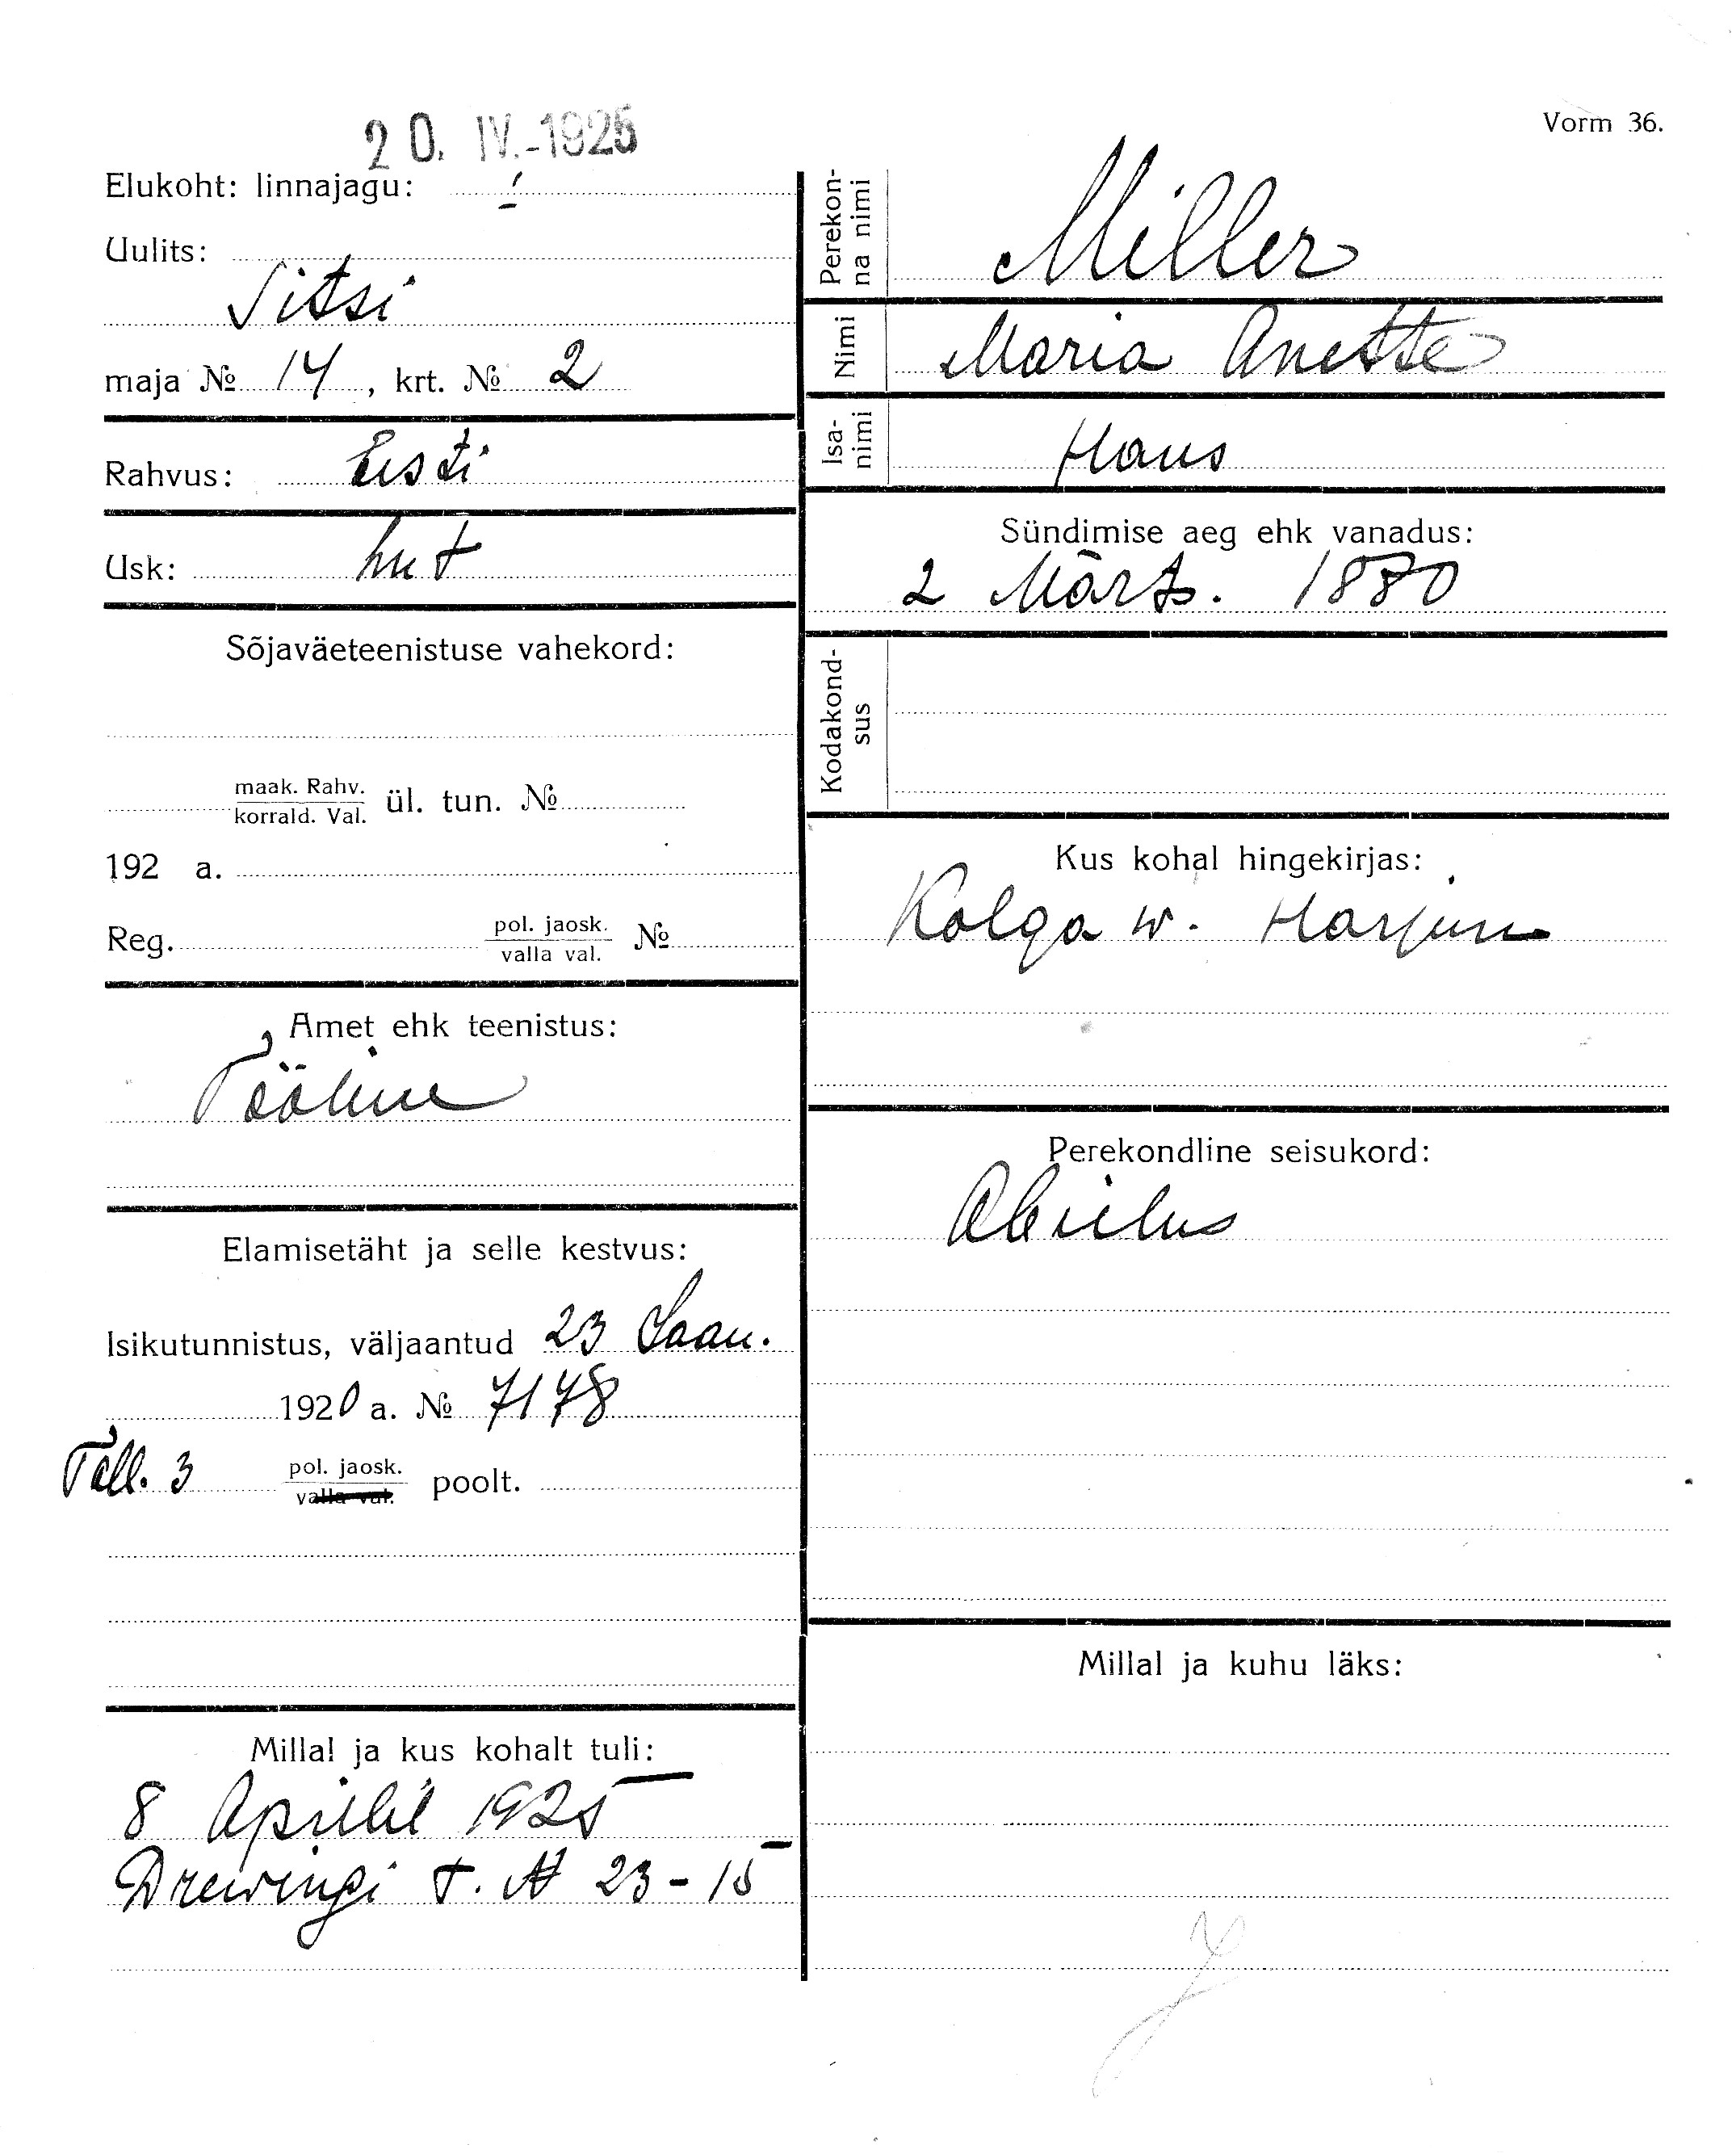 Vorm 36.
20. IV.-1925
Elukoht: linnajagu:
Uulits:
Sitsi
maja № 14, krt. № 2
Rahvus: Eesti
Usk: Lut
Sõjaväeteenistuse vahekord:
maak. Rahv.
korrald. Val. ül. tun. №
192 a.
Reg. pol. jaosk. №
valla val.
Amet ehk teenistus:
Tööline
Elamisetäht ja selle kestvus:
Isikutunnistus, väljaantud 23 Jaan.
1920 a. № 7178
Tall. 3 pol. jaosk. poolt.
valla val.
Millal ja kus kohalt tuli:
8 Aprillil 1925
Drewingi t. № 23-15
Perekon-
na nimi
Miller
Nimi
Maria Anette
Isa-
nimi
Hans
Sündimise aeg ehk vanadus:
2 Märts. 1880
Kodakond-
sus
Kus kohal hingekirjas:
Kolga w. Harjum
Perekondline seisukord:
Abielus
Millal ja kuhu läks: